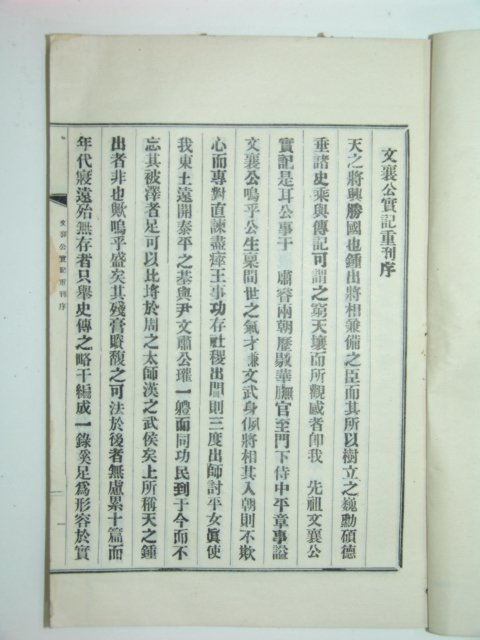 文襄公實記重刊序
天之將興勝國也鍾出將相兼備之臣而其所以樹立之巍勳碩德
垂諸史乘與傳記可謂之窮天壤而所觀國者卽我 先祖文襄公
實記是耳公事于 肅睿兩朝歷敭華膴官至門下侍中平章事諡
文襄公嗚乎公生稟間世之氣才兼文武身佩將相其入朝則不欺
心而專對直諫盡瘁王事功存社稷出閫則三度出師討平女眞使
我東土遠開泰平之基與尹文肅公瓘一軆而同功民到于今而不
忘其被澤者足可以比埓於周之太師漢之武侯矣上所稱天之鍾
出者非也歟嗚乎盛矣其殘膏賸馥之可法於後者無慮累十篇而
年代寢遠殆無存者只擧史傳之略干編成一錄奚足爲形容於實
文襄公實記重刊序
一